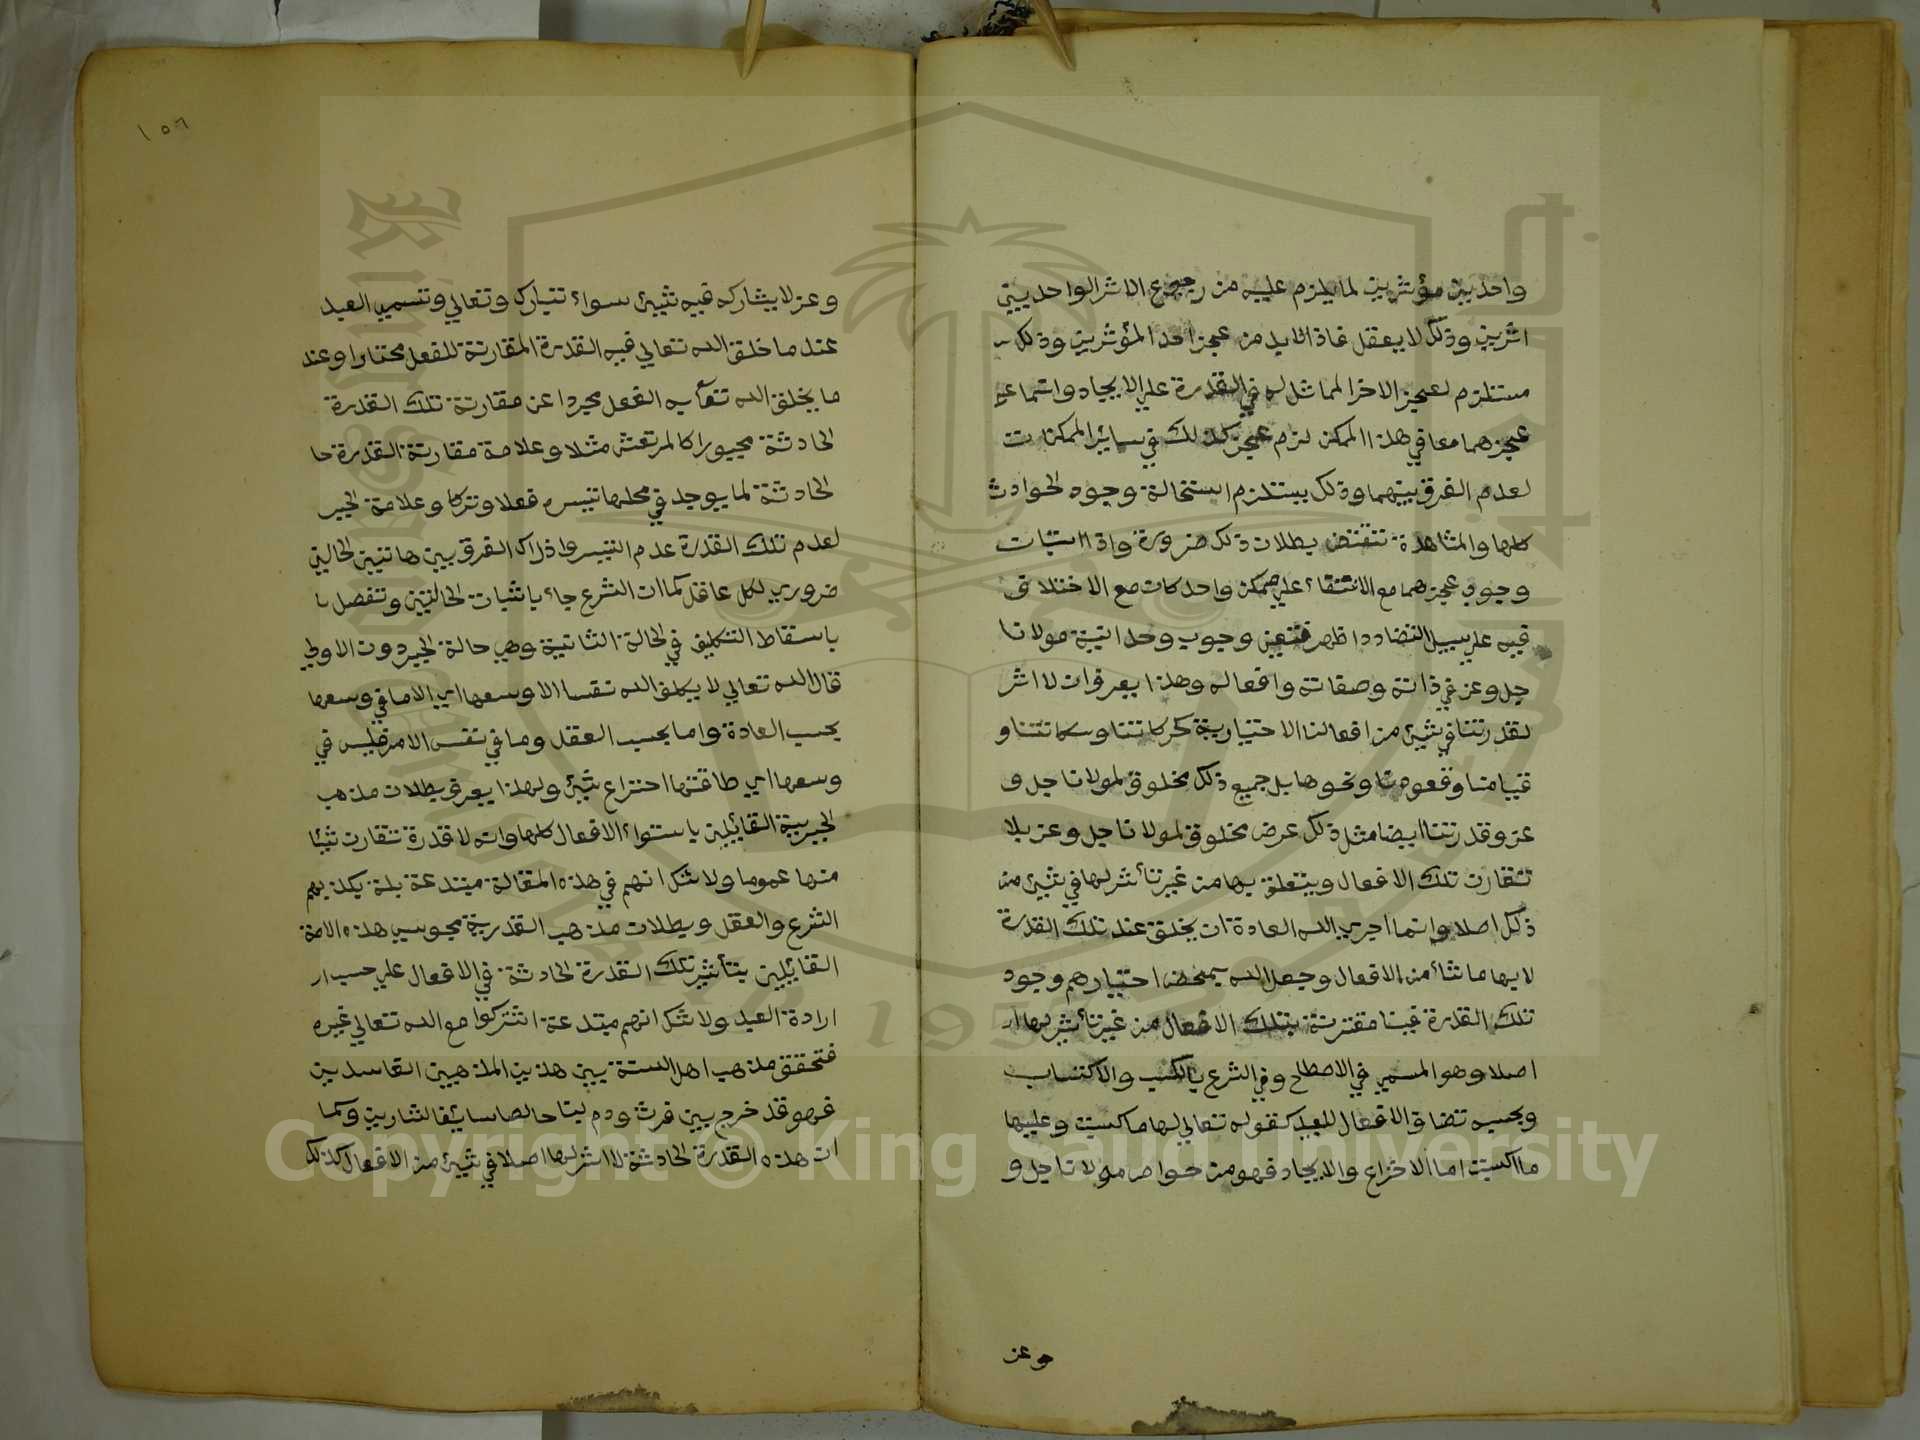 واحد بين مؤثرين لما يلزم عليه من رجوع الاثر الواحد بين
اثرين وذلك لا يعقل فاذا لابد من عجز احد المؤثرين وذلك
مستلزم لعجز الاخر المماثل له في القدرة علي الايجاد واتما
عجزهما معا في هذا الممكن لزم عجز كذلك في سائر الممكنات
لعدم الفرق بينهما وذلك يستلزم استحالة وجود الحوادث
كلها والمشاهدة تقتض بطلان ذلك ضرورة واذا استبات
وجوب عجزهما مع الاتفاق علي ممكن واحد كان مع الاختلاف
فيه علي سبيل التضاد اظهر فتعين وجوب وحدانية مولانا
جل وعز في ذاته وصفاته وافعاله وهذا يعرف ان لا اثر
لقدرتنا في شيئ من افعالنا الاختيارية كحركاتنا وسكناتنا و
قيامنا وقعودنا ونحوها بل جميع ذلك مخلوق لمولانا جل و
عز وقدرتنا ايضا مثل ذلك عرض مخلوق لمولانا جل وعز بلا
تقارن تلك الافعال ويتعلق بها من غير تأثر لها في شيئ من
ذلك اصلا وانما اجري الله العادة ان يخلق عند تلك القدرة
لا بها ما شاء من الافعال وجعل الله بمحض اختيارهم وجود
تلك القدرة فينا مقترنة بتلك الافعال من غير تأثير بها ا
اصلا وهو المسمي في الاصطلح وفي الشرع بالكسب والاكتساب
وبحسبه تضاف الافعال للعبد كقوله تعالي لها ما كسبت وعليها
ما اكتسبت اما الاختراع والايجاد فهو من خواص مولانا جل و
وعز
١٥٦
وعز لا يشاركه فيه شيئ سواه تبارك وتعالي وتسمي العبد
عند ما خلق الله تعالي فيه القدرة المقارنة للفعل مختارا وعند
ما يخلق الله تعا به الفعل مجردا عن مقارنة تلك القدرة
الحادثة مجبورا كالمرتعش مثلا وعلامة مقارنة القدرة حا
الحادثة لما يوجد في محلها تيسره فعلا وتركا وعلامة الجبر
لعدم تلك القدرة عدم التيسر واذراك الفرق بين هاتين الحالتين
ضروري لكل عاقل كما ان الشرع جاء باثبات الحالتين وتفصل
باسقاط التكليف في الحالة الثانية وهي حالة الجبر دون الاولي
قال الله تعالي لا يكلف الله نفسا الا وسعها اي الا ما في وسعها
بحسب العادة واما بحسب العقل وما في نفس الامر فليس في
وسعها اي طاقتها اختراع شيئ ولهذا يعرف بطلان مذهب
الجبرية القائلين باستواء الافعال كلها وانه لا قدرة تقارن شيئا
منها عموما ولا شك انهم في هذه المقالة مبتدعة بلة يكذبهم
الشرع والعقل وبطلان مذهب القدرية مجوسي هذه الامة
القائلين بتأثير تلك القدرة الحادثة في الافعال علي حسب ار
ارادة العبد ولا شك انهم مبتدعة اشتركوا مع الله تعالي غيره
فتحقق مذهب اهل السنة بين هذين المذهبين الفاسدين
فهو قد خرج بين فرث ودم لبنا خالصا سائغا للشاربين وكما
ان هذه القدرة الحادثة لا اثر لها اصلا في شيئ من الافعال كذلك